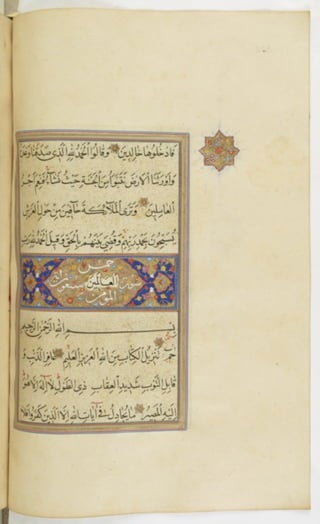 فَادْخُلُوهَا خَالِدِينَ وَقَالُوا الْحَمْدُ لِلَّهِ الَّذِي صَدَقَنَا وَعْدَهُ
وَأَوْرَثَنَا الْأَرْضَ نَتَبَوَّأُ مِنَ الْجَنَّةِ حَيْثُ نَشَاءُ فَنِعْمَ أَجْرُ
الْعَامِلِينَ وَتَرَى الْمَلَائِكَةَ حَافِّينَ مِنْ حَوْلِ الْعَرْشِ
يُسَبِّحُونَ بِحَمْدِ رَبِّهِمْ وَقُضِيَ بَيْنَهُمْ بِالْحَقِّ وَقِيلَ الْحَمْدُ لِلَّهِ رَبِّ
سورة الْعَالَمِينَ
المؤمن
بِسْمِ اللَّهِ الرَّحْمَنِ الرَّحِيمِ
حم تَنْزِيلُ الْكِتَابِ مِنَ اللَّهِ الْعَزِيزِ الْعَلِيمِ غَافِرِ الذَّنْبِ وَ
قَابِلِ التَّوْبِ شَدِيدِ الْعِقَابِ ذِي الطَّوْلِ لَا إِلَهَ إِلَّا هُوَ
إِلَيْهِ الْمَصِيرُ مَا يُجَادِلُ فِي آيَاتِ اللَّهِ إِلَّا الَّذِينَ كَفَرُوا فَلَا